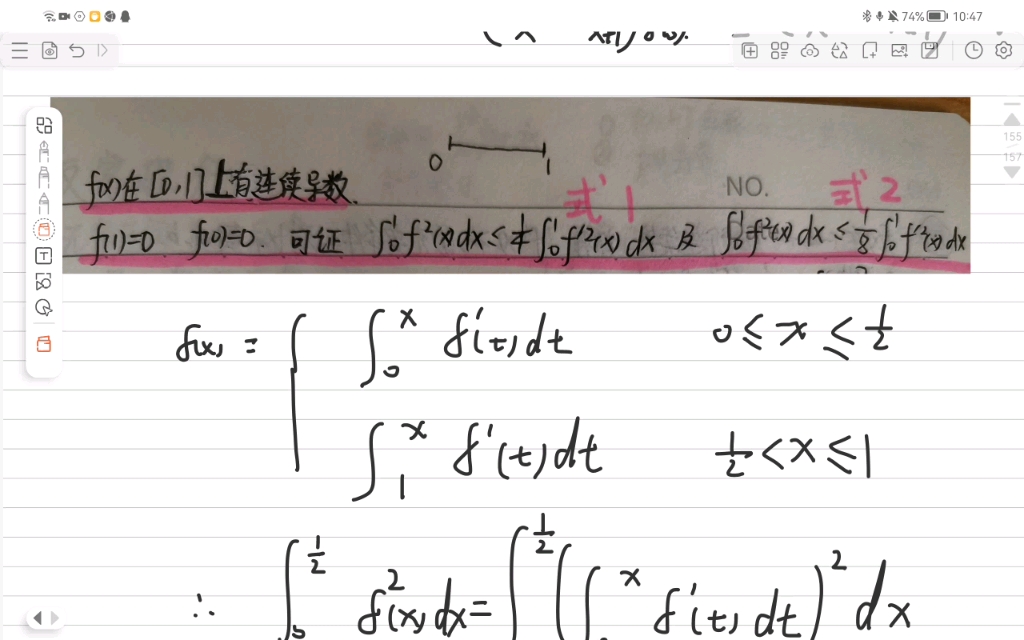 74% 10:47
155
157
0 1
f(x)在[0,1]上有连续导数.
式1 NO. 式2
f(1)=0 f(0)=0. 可证 ∫₀¹f²(x)dx ≤ ¼∫₀¹f'²(x)dx 及 ∫₀¹f²(x)dx ≤ ⅛∫₀¹f'²(x)dx
f(x) = { ∫₀ˣ f'(t)dt 0 ≤ x ≤ ½
∫₁ˣ f'(t)dt ½ < x ≤ 1
∴ ∫₀^½ f²(x)dx = ∫^½ (∫₀ˣ f'(t)dt)² dx